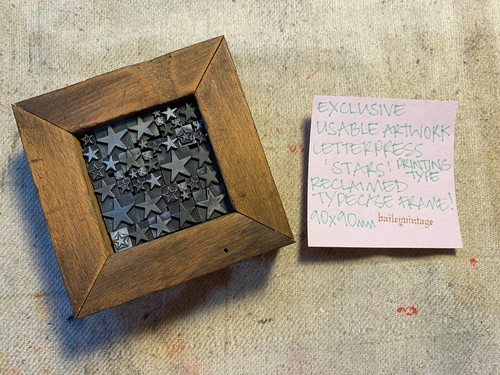 EXCLUSIVE
USABLE ARTWORK
LETTERPRESS
'STARS' PRINTING TYPE
RECLAIMED
TYPECASE FRAME!
90x90mm baileyvintage